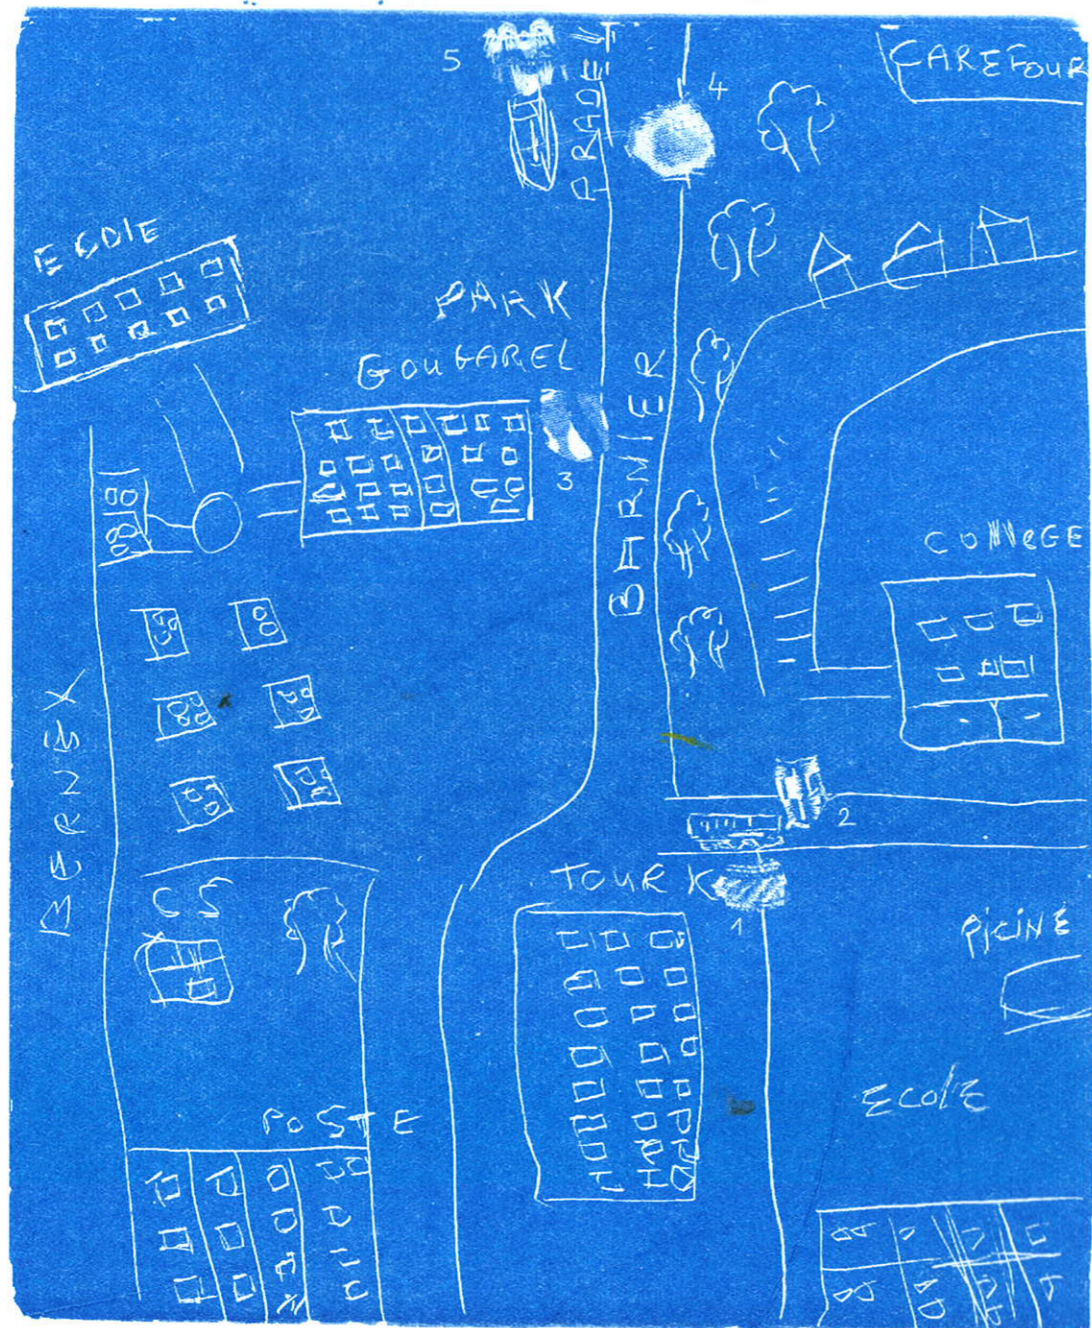 5
PRADEL
4
CAREFOUR
ECOlE
PARK
GOUGAREL
3
BARNIER
COllEGE
BERNEX
2
TOUR K
1
PiCiNE
ECOlE
POSTE